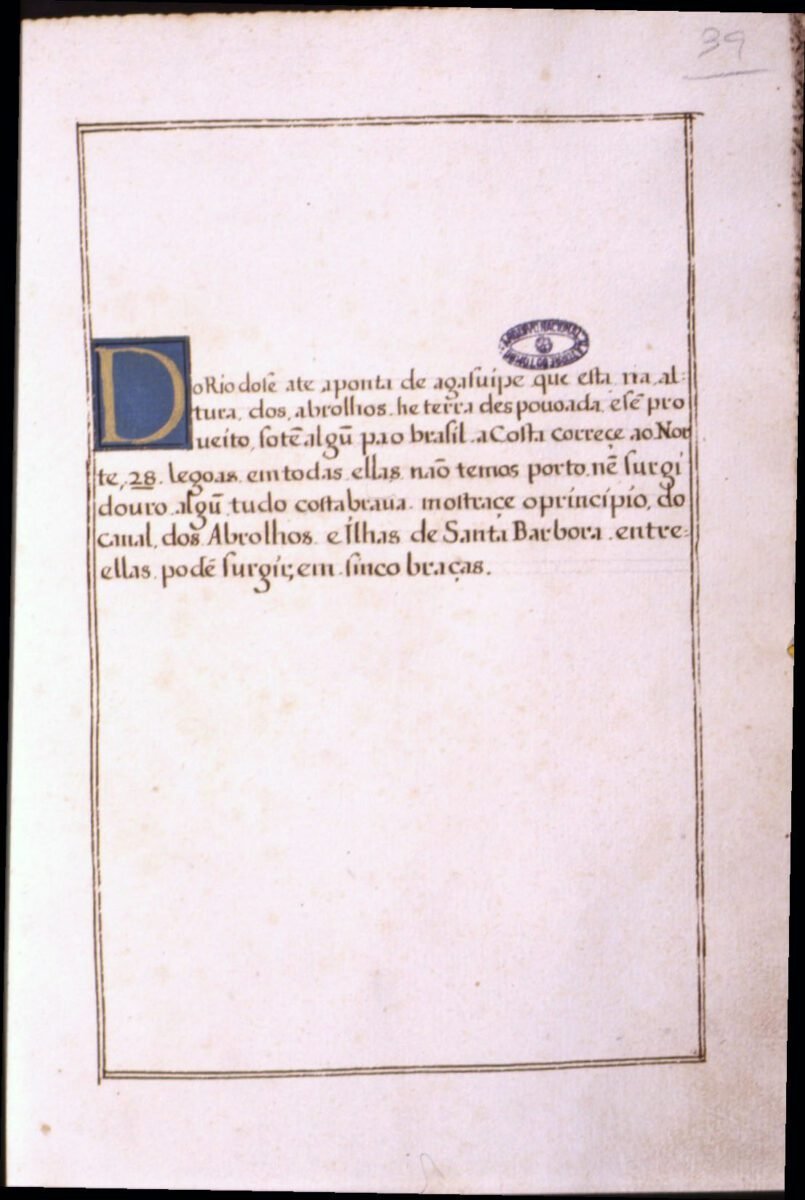 39
ARQUIVO NACIONAL DA TORRE DO TOMBO
Do Rio dose ate a ponta de agasuipe que esta na al-
tura dos abrolhos he terra despouoada e sẽ pro
ueito, so tẽ algũ pao brasil a Costa correçe ao Nor
te, 28. legoas em todas ellas não temos porto nẽ surgi
douro algũ tudo costa braua mostraçe o principio do
canal dos Abrolhos e Ilhas de Santa Barbora entre-
ellas podẽ surgir, em sinco braças.